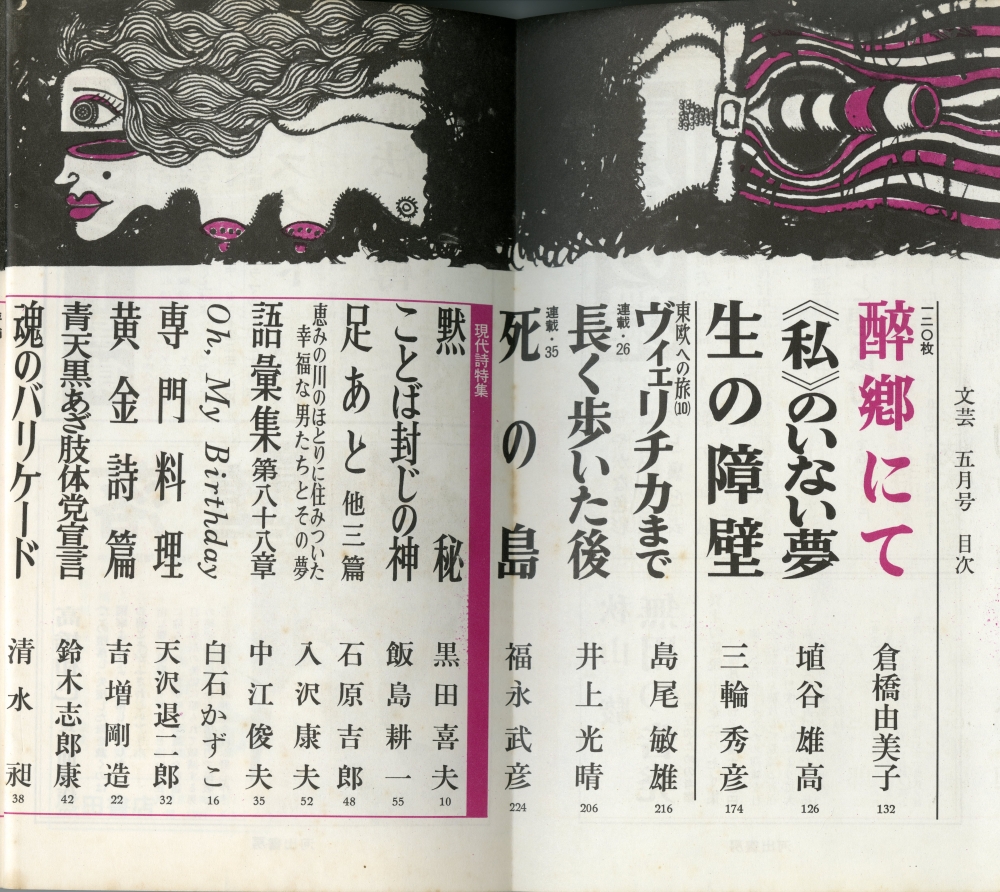 文芸 五月号 目次
一二〇枚
醉郷にて 倉橋由美子 132
《私》のいない夢 埴谷雄高 126
生の障壁 三輪秀彦 174
東欧への旅(10)
ヴィエリチカまで 島尾敏雄 216
連載・26
長く歩いた後 井上光晴 206
連載・35
死の島 福永武彦 224
現代詩特集
黙秘 黒田喜夫 10
ことば封じの神 飯島耕一 55
足あと 他三篇 石原吉郎 48
恵みの川のほとりに住みついた
幸福な男たちとその夢 入沢康夫 52
語彙集第八十八章 中江俊夫 35
Oh, My Birthday 白石かずこ 16
専門料理 天沢退二郎 32
黄金詩篇 吉増剛造 22
青天黒あざ肢体党宣言 鈴木志郎康 42
魂のバリケード 清水昶 38